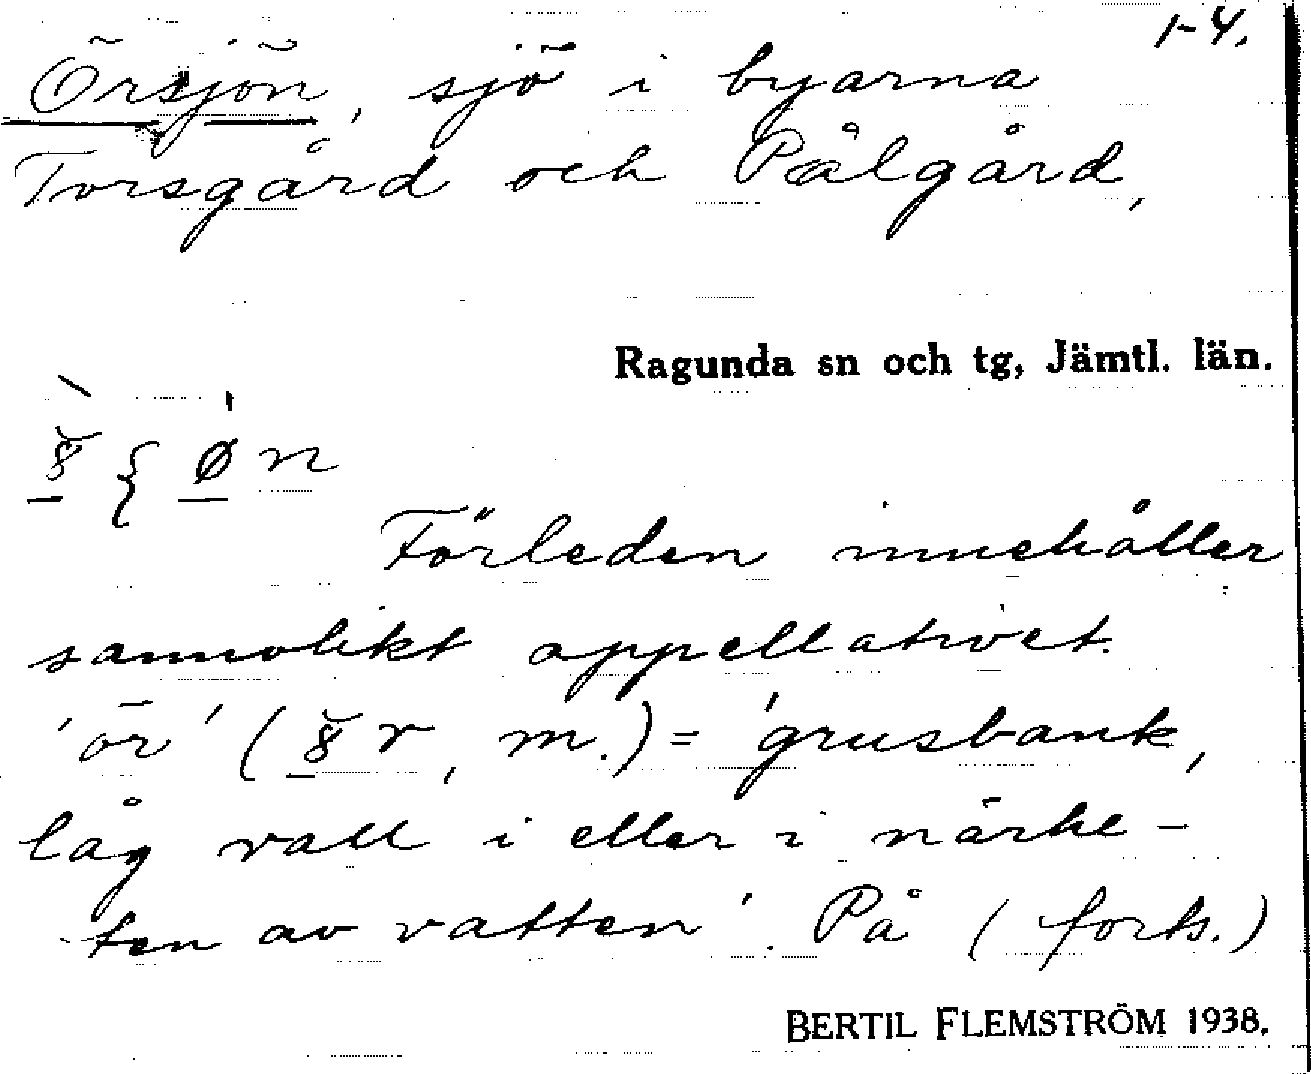 1-4.
Örsjön, sjö i byarna
Torsgård och Pålgård,
Ragunda sn och tg, Jämtl. län.
Förleden innehåller
sannolikt appellativet
'ör' ( r, m.) = 'grusbank,
låg vall i eller i närhe-
ten av vatten'. På (forts.)
BERTIL FLEMSTRÖM 1938.